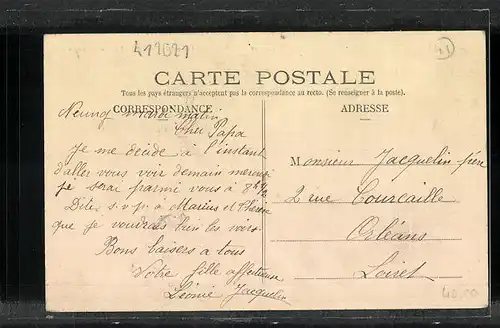 411021
41
CARTE POSTALE
Tous les pays étrangers n'acceptent pas la correspondance au recto. (Se renseigner à la poste).
CORRESPONDANCE
ADRESSE
Neung Mardi matin
Cher Papa
Je me décide à l'instant
d'aller vous voir demain mercredi
je serai parmi vous à 8h ½
Dite s.v.p à Marius et Thérèse
que je voudrais bien les voir.
Bons baisers a tous
Votre fille affectueuse
Léonie Jacquelin
Monsieur Jacquelin père
2 rue Courcaille
Orléans
Loiret